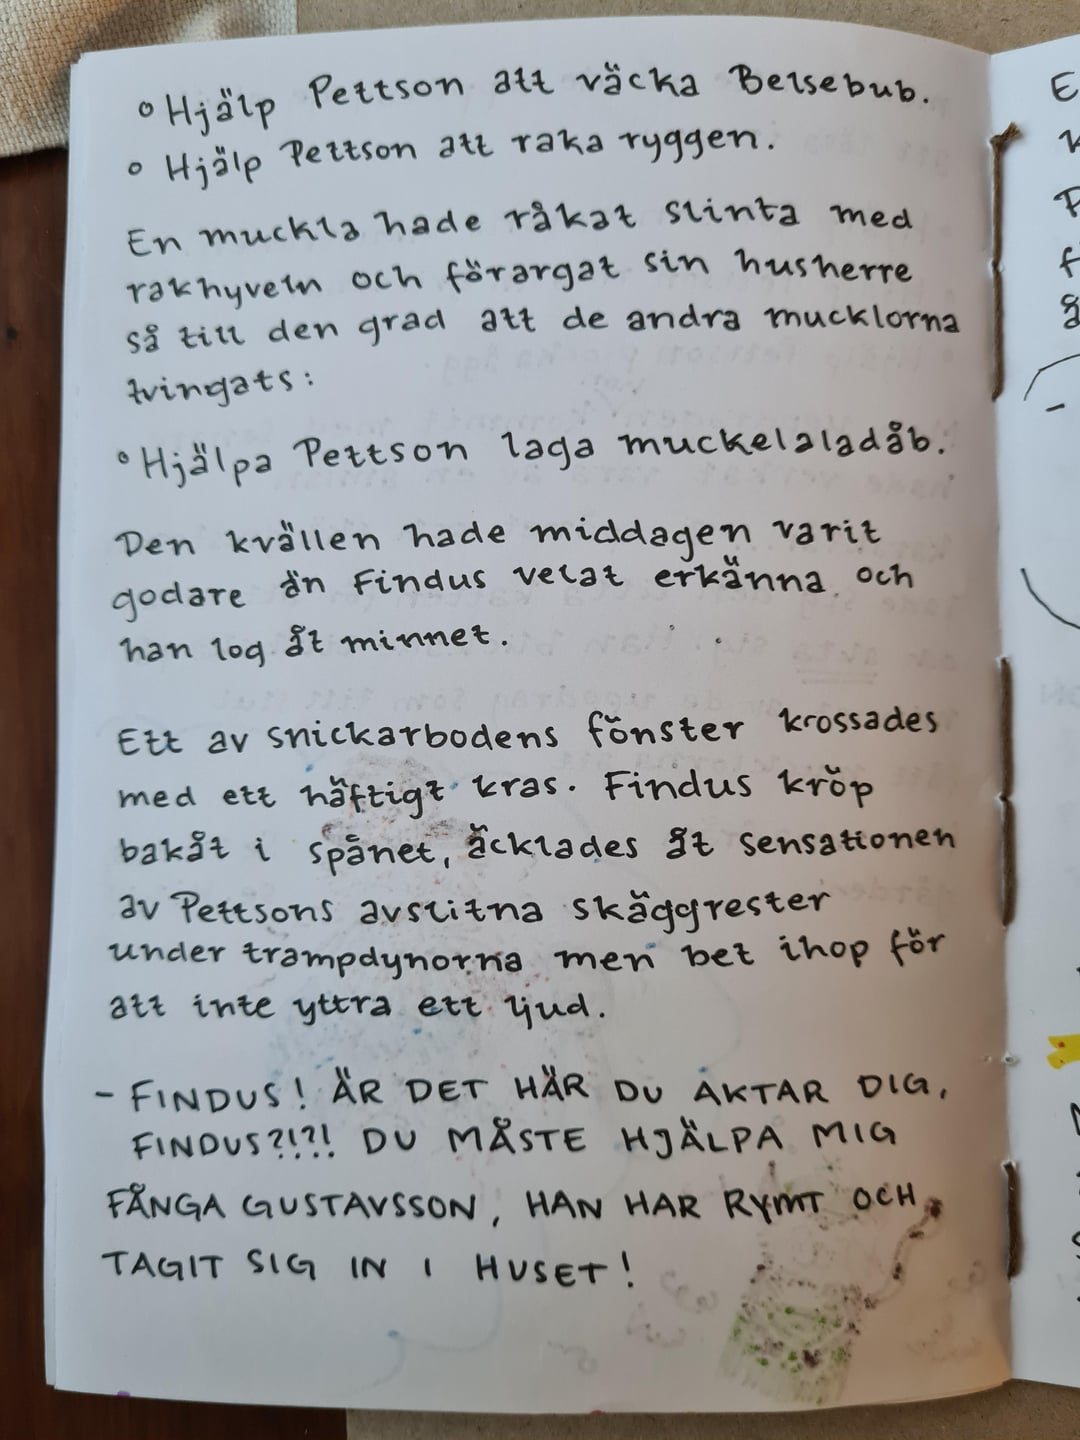 ° Hjälp Pettson att väcka Belsebub.
° Hjälp Pettson att raka ryggen.
En muckla hade råkat slinta med
rakhyveln och förargat sin husherre
så till den grad att de andra mucklorna
tvingats:
° Hjälpa Pettson laga muckelaladåb.
Den kvällen hade middagen varit
godare än Findus velat erkänna och
han log åt minnet.
Ett av snickarbodens fönster krossades
med ett häftigt kras. Findus kröp
bakåt i spånet, äcklades åt sensationen
av Pettsons avslitna skäggrester
under trampdynorna men bet ihop för
att inte yttra ett ljud.
- FINDUS! ÄR DET HÄR DU AKTAR DIG,
FINDUS?!?! DU MÅSTE HJÄLPA MIG
FÅNGA GUSTAVSSON, HAN HAR RYMT OCH
TAGIT SIG IN I HUSET!